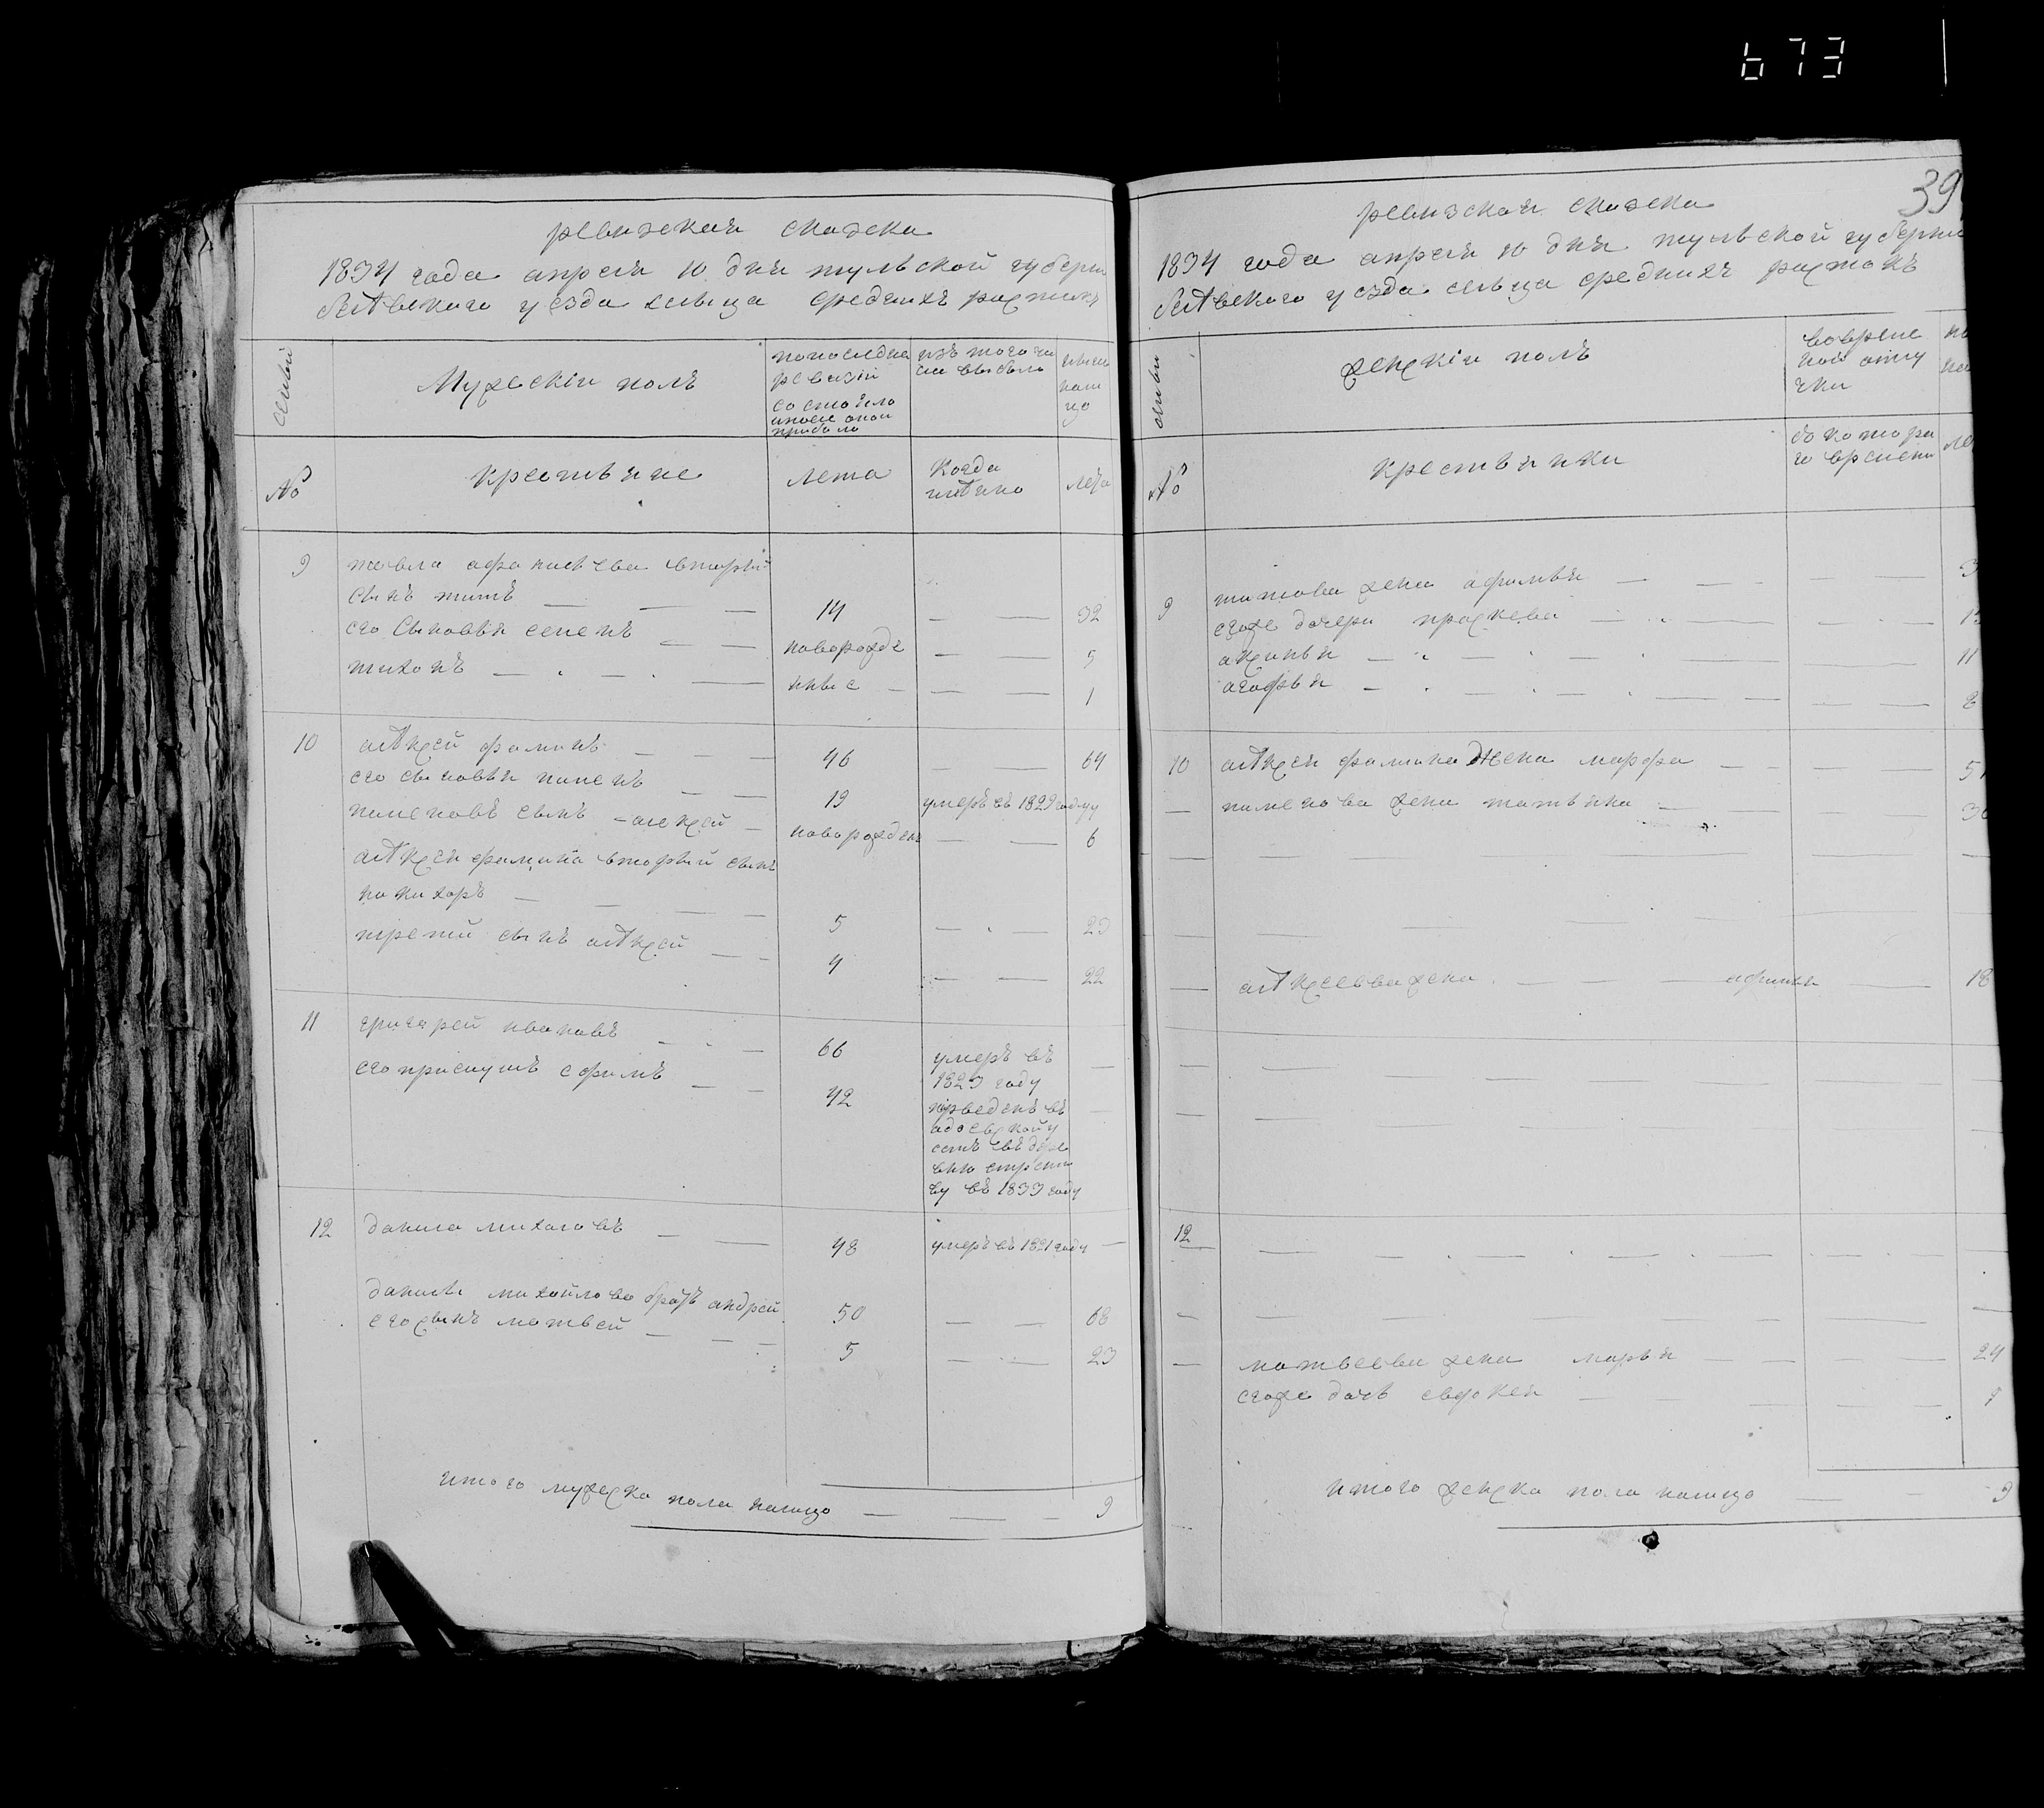 673
39
ревизская сказка
1834 года апреля 10 дня тульской губерни
белѣвскаго уезда сельца средних растокъ
семьи
Мужескiй полъ
попоследне
ревизiи
состояло
ипосле оной
прибыло
изъ того чи
сла выбыло
ныне
нали
цо
№
крестьяне
лета
Когда
имѣнно
лета
9 павла афанасьева вторый
сынъ титъ — — — 14 — — 32
его сыновья семенъ — — новорожде — — 5
тихонъ — — — нные — — — 1
10 алѣксей фаминъ — — — 46 — 64
его сыновья пименъ — — 19 умеръ въ 1829 году
пименовъ сынъ — алексей — новорожденъ — — 6
алѣксея фамина вторый сынъ
никихоръ — — — — 5 — — 23
третий сынъ алѣксей — — 4 — — 22
11 григарей ивановъ — — — 66 умеръ въ —
1823 году
его приемушъ ефимъ — — 42
въ 1833 году
12 данила михаловъ — — 48 умеръ въ 1821 году —
данилы михайлова братъ андрей 50 — — 68
его сынъ матвей — — — 5 — — 23
итого мужеска пола налицо — — — 9
ревизская сказка
1834 года апреля 10 дня тульской губерни
белѣвскаго уезда сельца средних растокъ
семьи
женскiй полъ
вовреме
ной отлу
чки
№
крестьянки
съ котора
го времени
ле
9 титова жена афимья — — — — 3
егоже дочери праскева — — — — 1
аксинья — — — — — 11
агафья — — — — — — 8
10 алѣксея фамина жена марфа — — — — 5
— пименова жена татьяна — — — 3
— алѣксеева жена — — — афимья — 18
12 — — — — — —
— матвеева жена марья — — — — 24
егоже дочь евдокея — — — — —
итого женска пола налицо — — 9